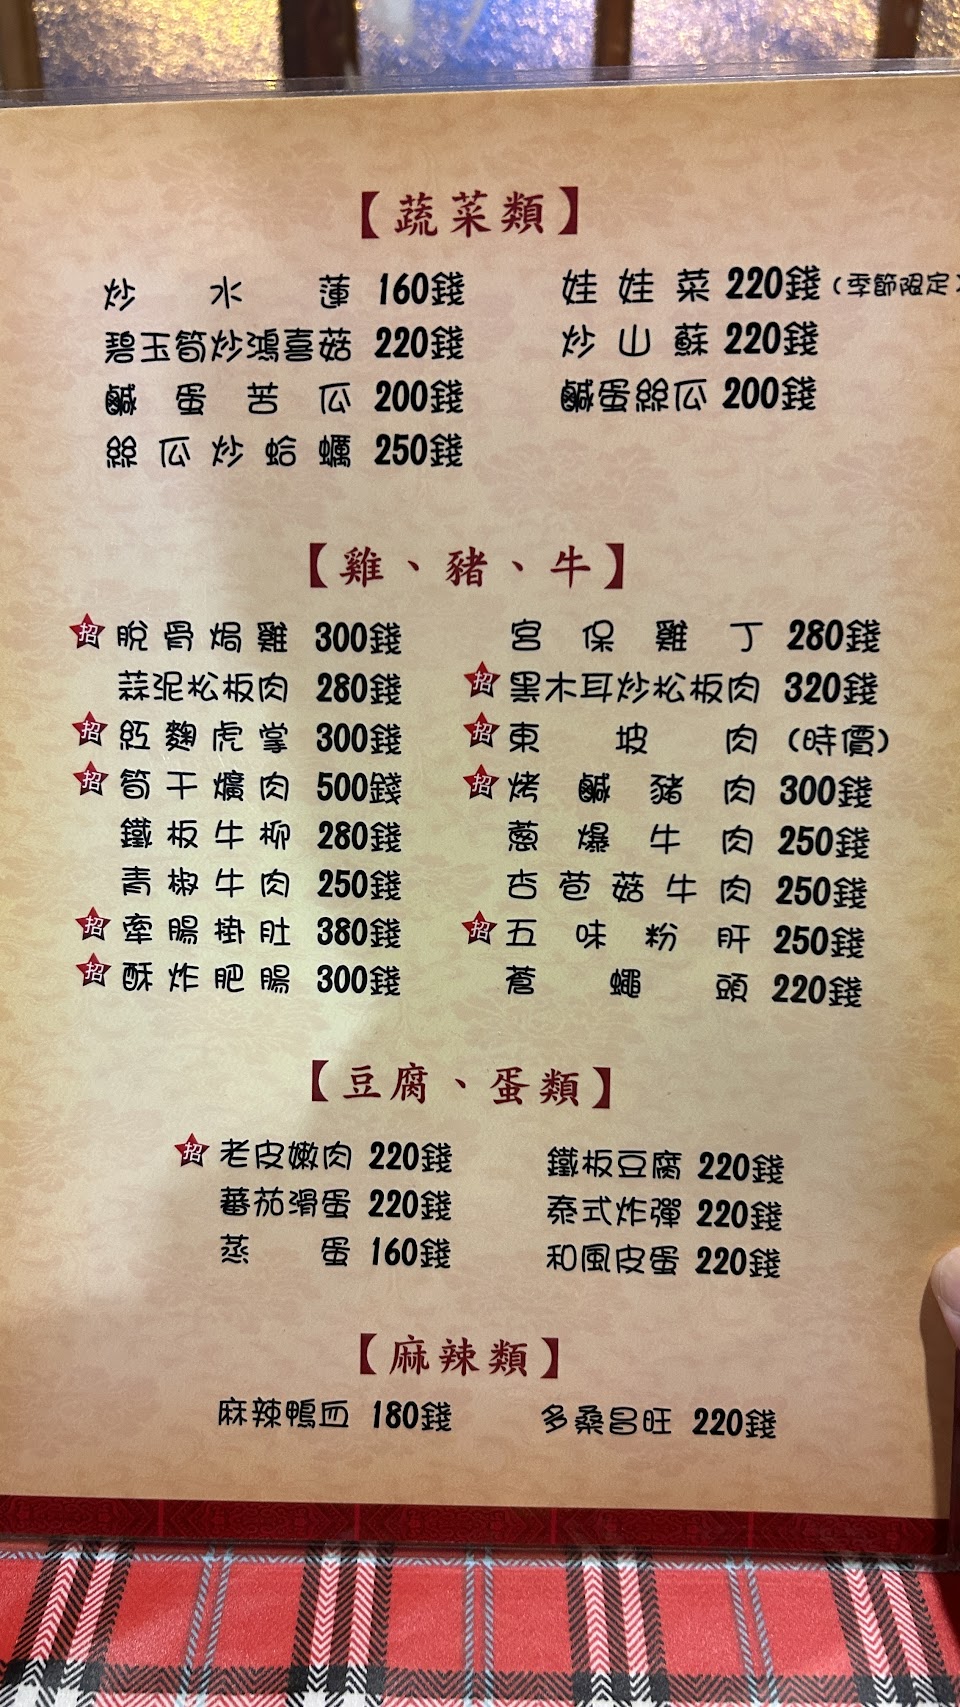 【蔬菜類】
炒水蓮 160錢
娃娃菜 220錢(季節限定)
碧玉筍炒鴻喜菇 220錢
炒山蘇 220錢
鹹蛋苦瓜 200錢
鹹蛋絲瓜 200錢
絲瓜炒蛤蠣 250錢
【雞、豬、牛】
招 脫骨焗雞 300錢
宮保雞丁 280錢
蒜泥松板肉 280錢
招 黑木耳炒松板肉 320錢
招 紅麴虎掌 300錢
招 東坡肉 (時價)
招 筍干爌肉 500錢
招 烤鹹豬肉 300錢
鐵板牛柳 280錢
蔥爆牛肉 250錢
青椒牛肉 250錢
杏苞菇牛肉 250錢
招 牽腸掛肚 380錢
招 五味粉肝 250錢
招 酥炸肥腸 300錢
蒼蠅頭 220錢
【豆腐、蛋類】
招 老皮嫩肉 220錢
鐵板豆腐 220錢
蕃茄滑蛋 220錢
泰式炸彈 220錢
蒸蛋 160錢
和風皮蛋 220錢
【麻辣類】
麻辣鴨血 180錢
多桑昌旺 220錢